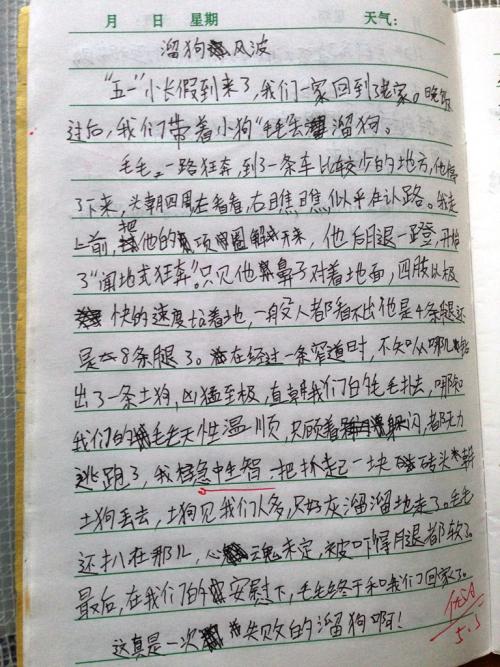 月 日 星期 天气：
溜狗风波
“五一”小长假到来了，我们一家回到了老家。晚饭
过后，我们带着小狗“毛毛”去溜狗。
毛毛一路狂奔，到了一条车比较少的地方，他停
了下来，头朝四周左看看，右瞧瞧，似乎在认路。我走
上前，把他的项圈解开来，他后腿一蹬，开始
了“闻地式狂奔”。只见他鼻子对着地面，四肢以极
快的速度沾着地，一般人都看不出他是4条腿还
是8条腿了。在经过一条窄道时，不知从哪儿
出了一条土狗，凶猛至极，直朝我们的毛毛扑去，哪知
我们的毛毛天性温顺，只顾着躲闪，都无力
逃跑了，我急中生智一把抓起一块砖头朝
土狗丢去，土狗见我们人多，只好灰溜溜地走了。毛毛
还趴在那儿，心魂未定，被吓得腿都软了。
最后，在我们的安慰下，毛毛终于和我们回家了。
这真是一次失败的溜狗啊！
5.3